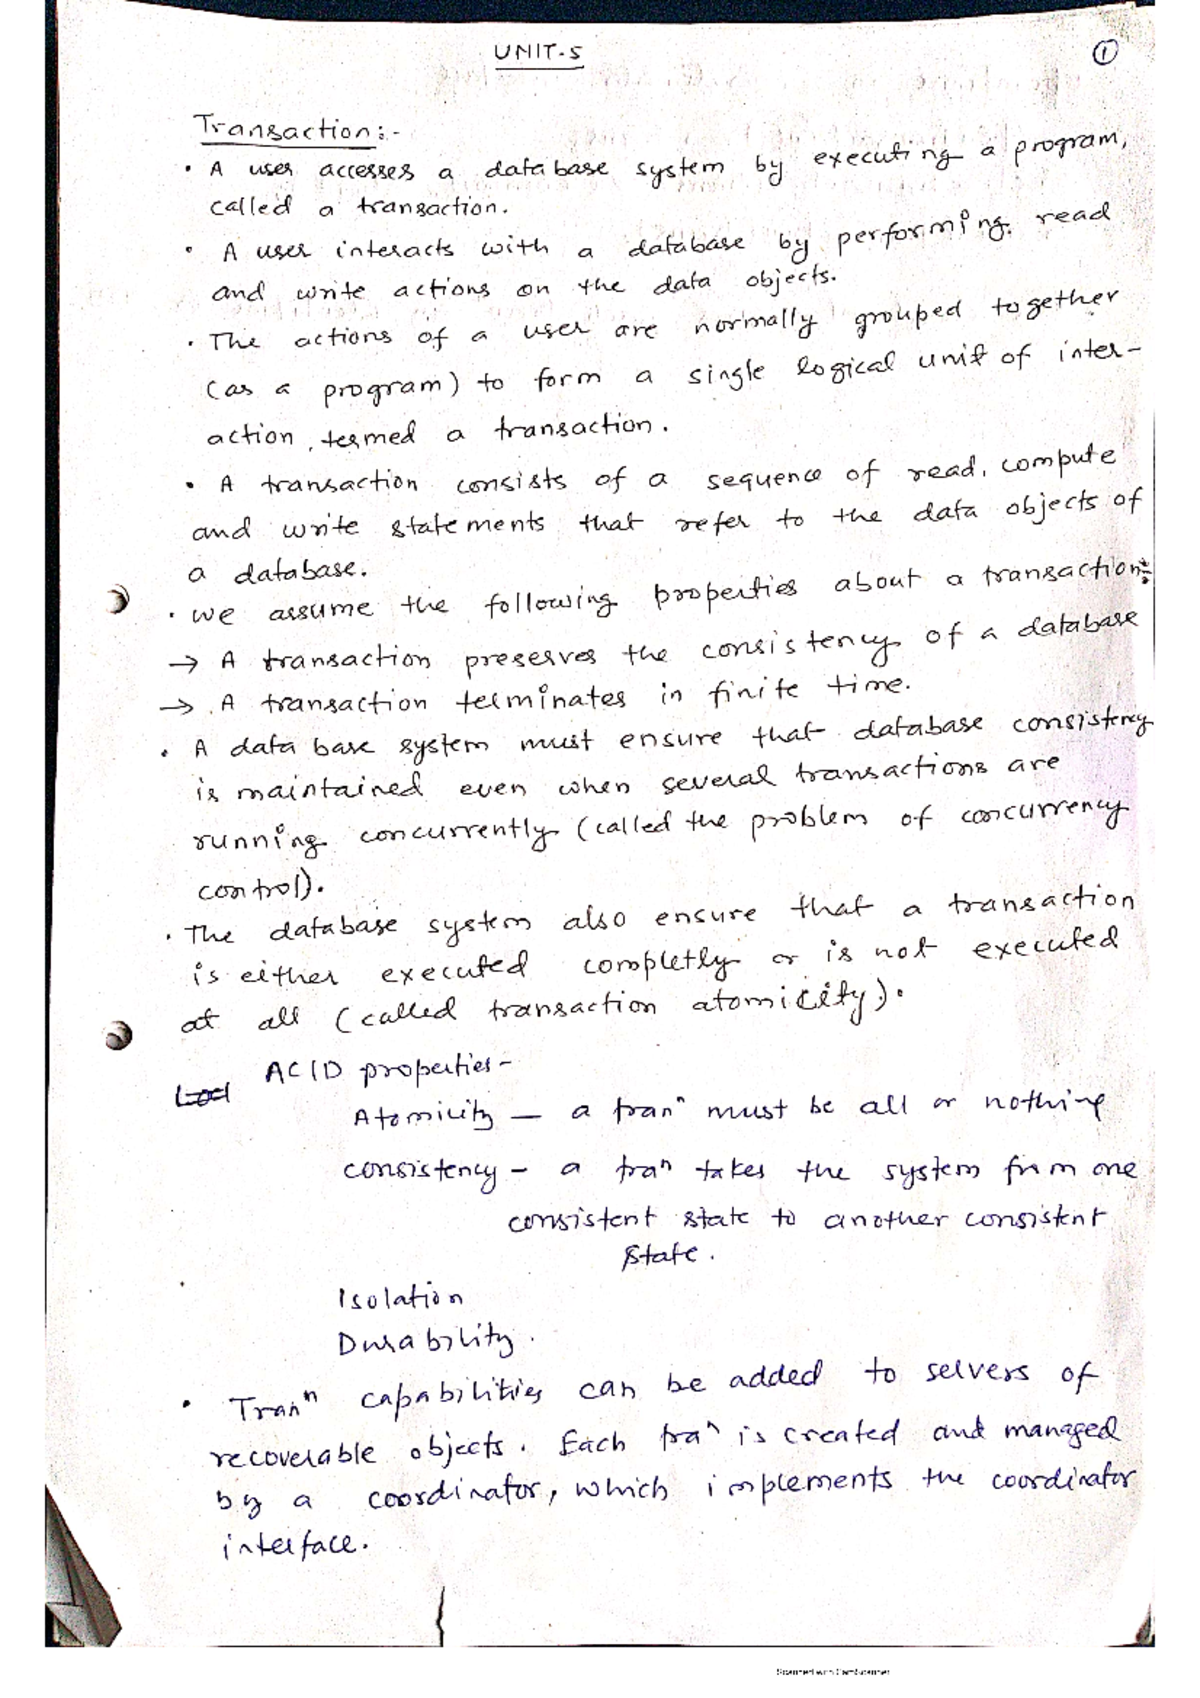 UNIT-5
1
Transaction:-
• A user accesses a database system by executing a program,
called a transaction.
• A user interacts with a database by performing read
and write actions on the data objects.
• The actions of a user are normally grouped together
(as a program) to form a single logical unit of inter-
action, termed a transaction.
• A transaction consists of a sequence of read, compute
and write statements that refer to the data objects of
a database.
• we assume the following properties about a transaction:
→ A transaction preserves the consistency of a database
→ A transaction terminates in finite time.
• A data base system must ensure that database consistency
is maintained even when several transactions are
running concurrently (called the problem of concurrency
control).
• The database system also ensure that a transaction
is either executed completly or is not executed
at all (called transaction atomicity).
ACID properties-
Atomicity — a tranⁿ must be all or nothing
consistency - a traⁿ takes the system from one
consistent state to another consistent
state.
Isolation
Durability.
• Tranⁿ capabilities can be added to servers of
recoverable objects. Each traⁿ is created and managed
by a coordinator, which implements the coordinator
interface.
Scanned with CamScanner